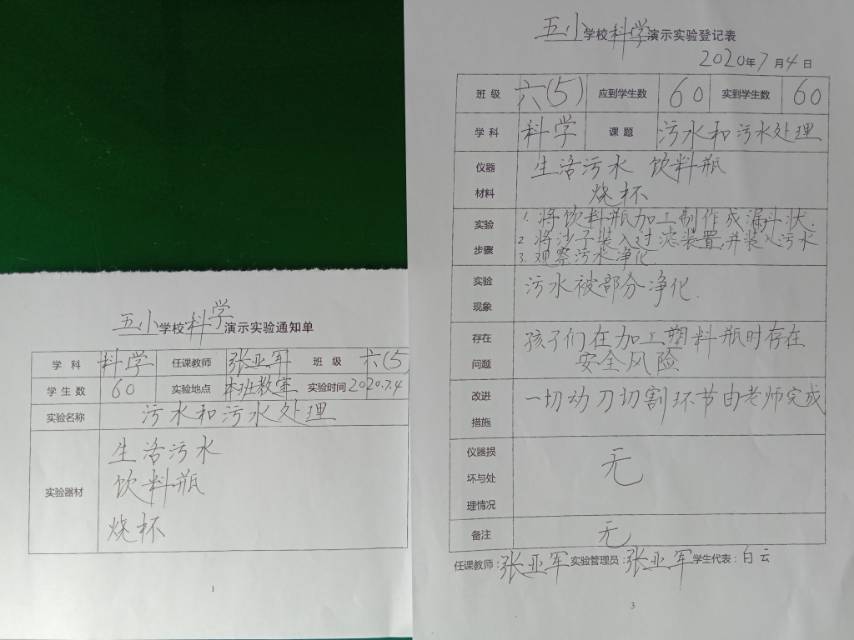 五小学校科学演示实验通知单
学科 科学 任课教师 张亚军 班级 六(5)
学生数 60 实验地点 本班教室 实验时间 2020.7.4
实验名称 污水和污水处理
实验器材 生活污水
饮料瓶
烧杯
1
五小学校科学演示实验登记表
2020年7月4日
班级 六(5) 应到学生数 60 实到学生数 60
学科 科学 课题 污水和污水处理
仪器材料 生活污水 饮料瓶
烧杯
实验步骤 1. 将饮料瓶加工制作成漏斗状.
2 将沙子装入过滤装置,并装入污水
3. 观察污水净化
实验现象 污水被部分净化.
存在问题 孩子们在加工塑料瓶时存在
安全风险
改进措施 一切动刀切割环节由老师完成
仪器损坏与处理情况 无
备注 无
任课教师:张亚军 实验管理员:张亚军 学生代表:白云
3